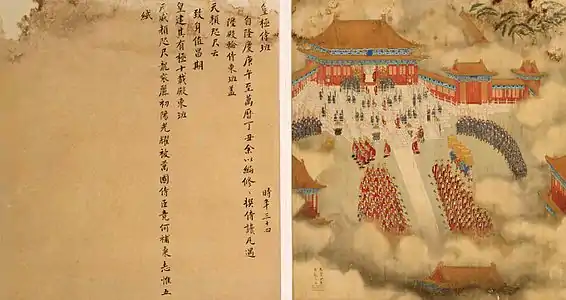 皇極侍班
自隆慶庚午至萬曆丁丑余以編修、撰侍讀凡遇
陞殿輪侍東班蓋
天顏咫尺云
時年三十四
致身値昌期
皇建其有極十載殿東班
天威顏咫尺龍袞麗初陽光耀被萬國侍臣竟何補東志惟五
紱